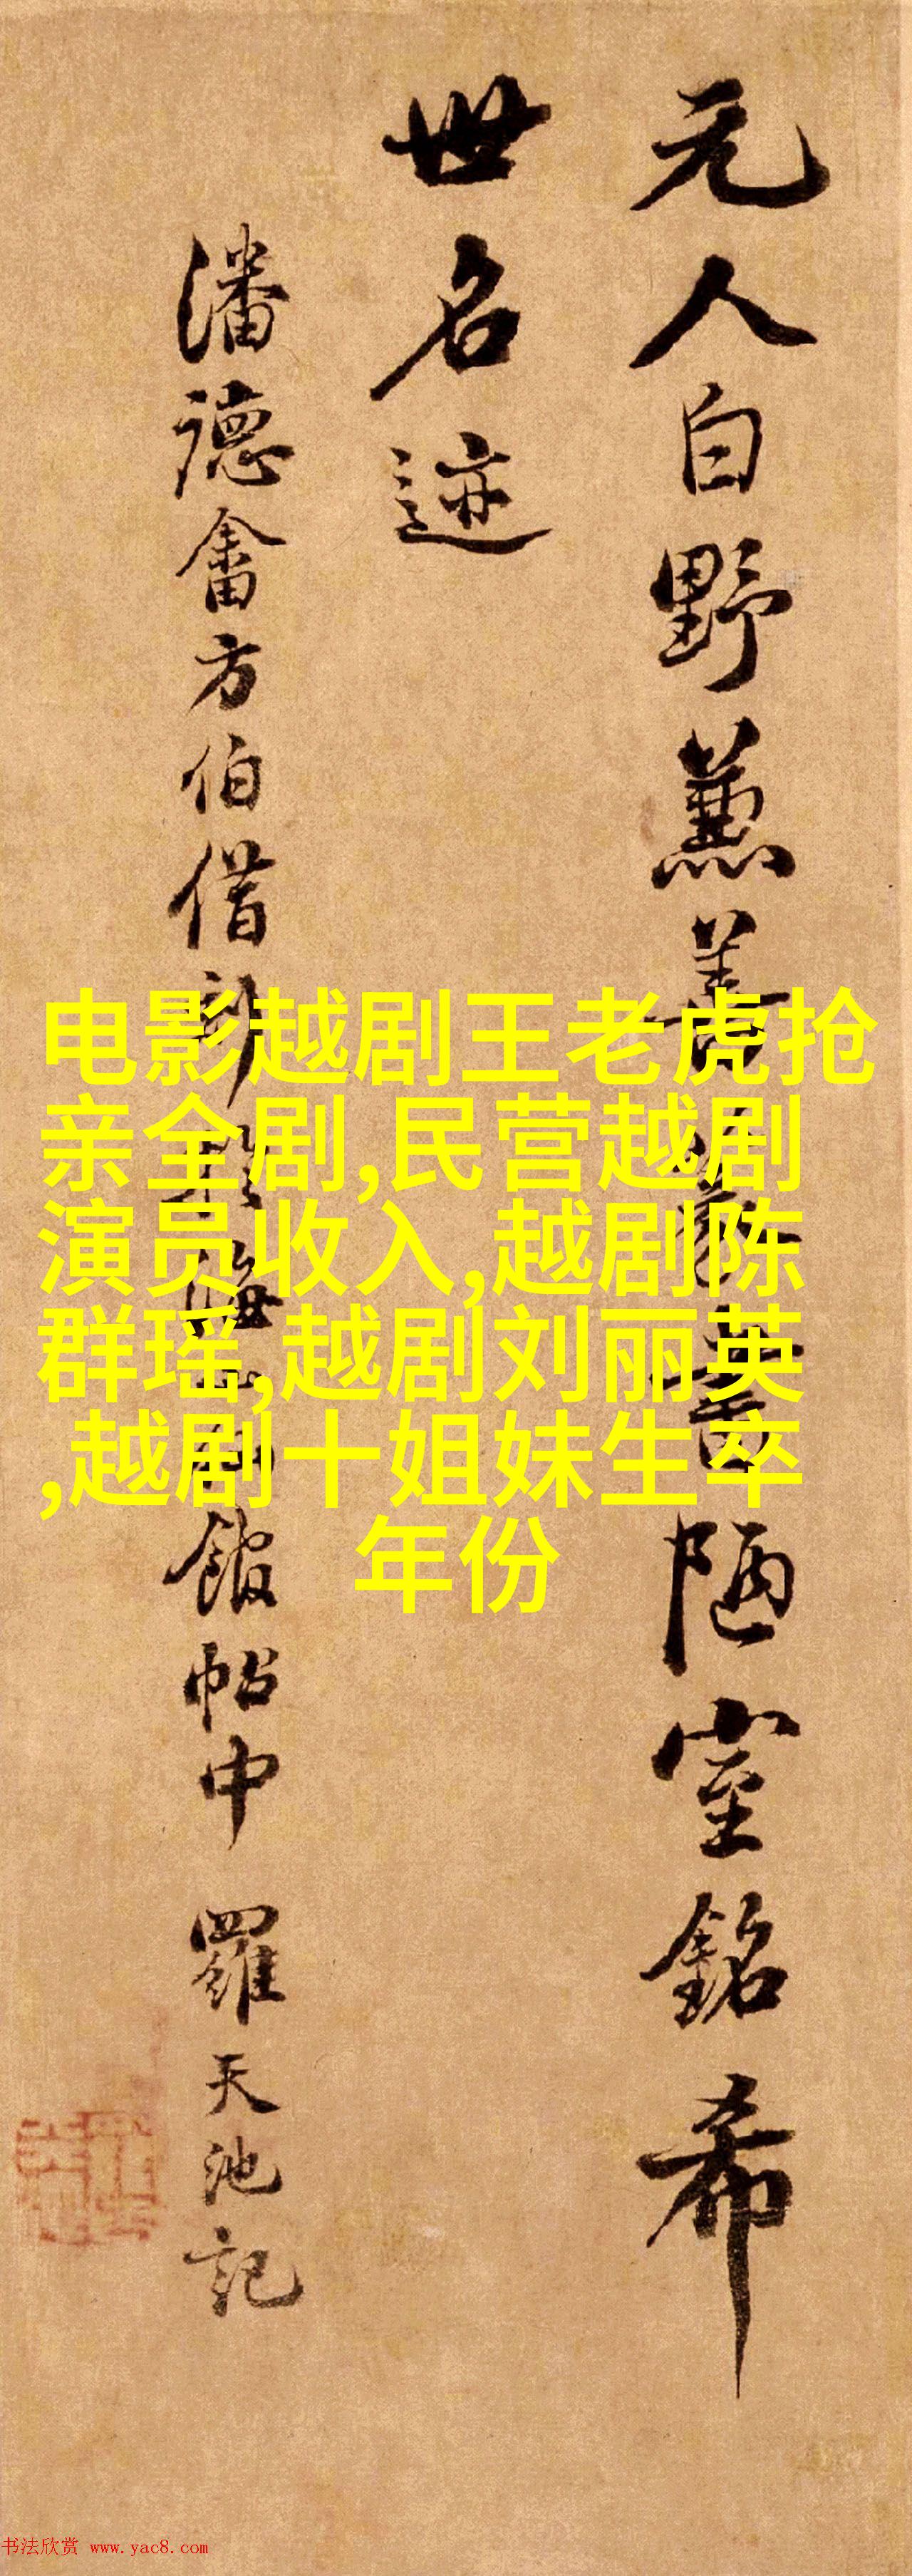 元人白野藁善 書陋室銘希
世名迹
潘德畬方伯借 海山 館帖中 羅天池記
电影越剧王老虎抢
亲全剧,民营越剧
演员收入,越剧陈
群瑶,越剧刘丽英
,越剧十姐妹生卒
年份
书法欣赏 www.yac8.com